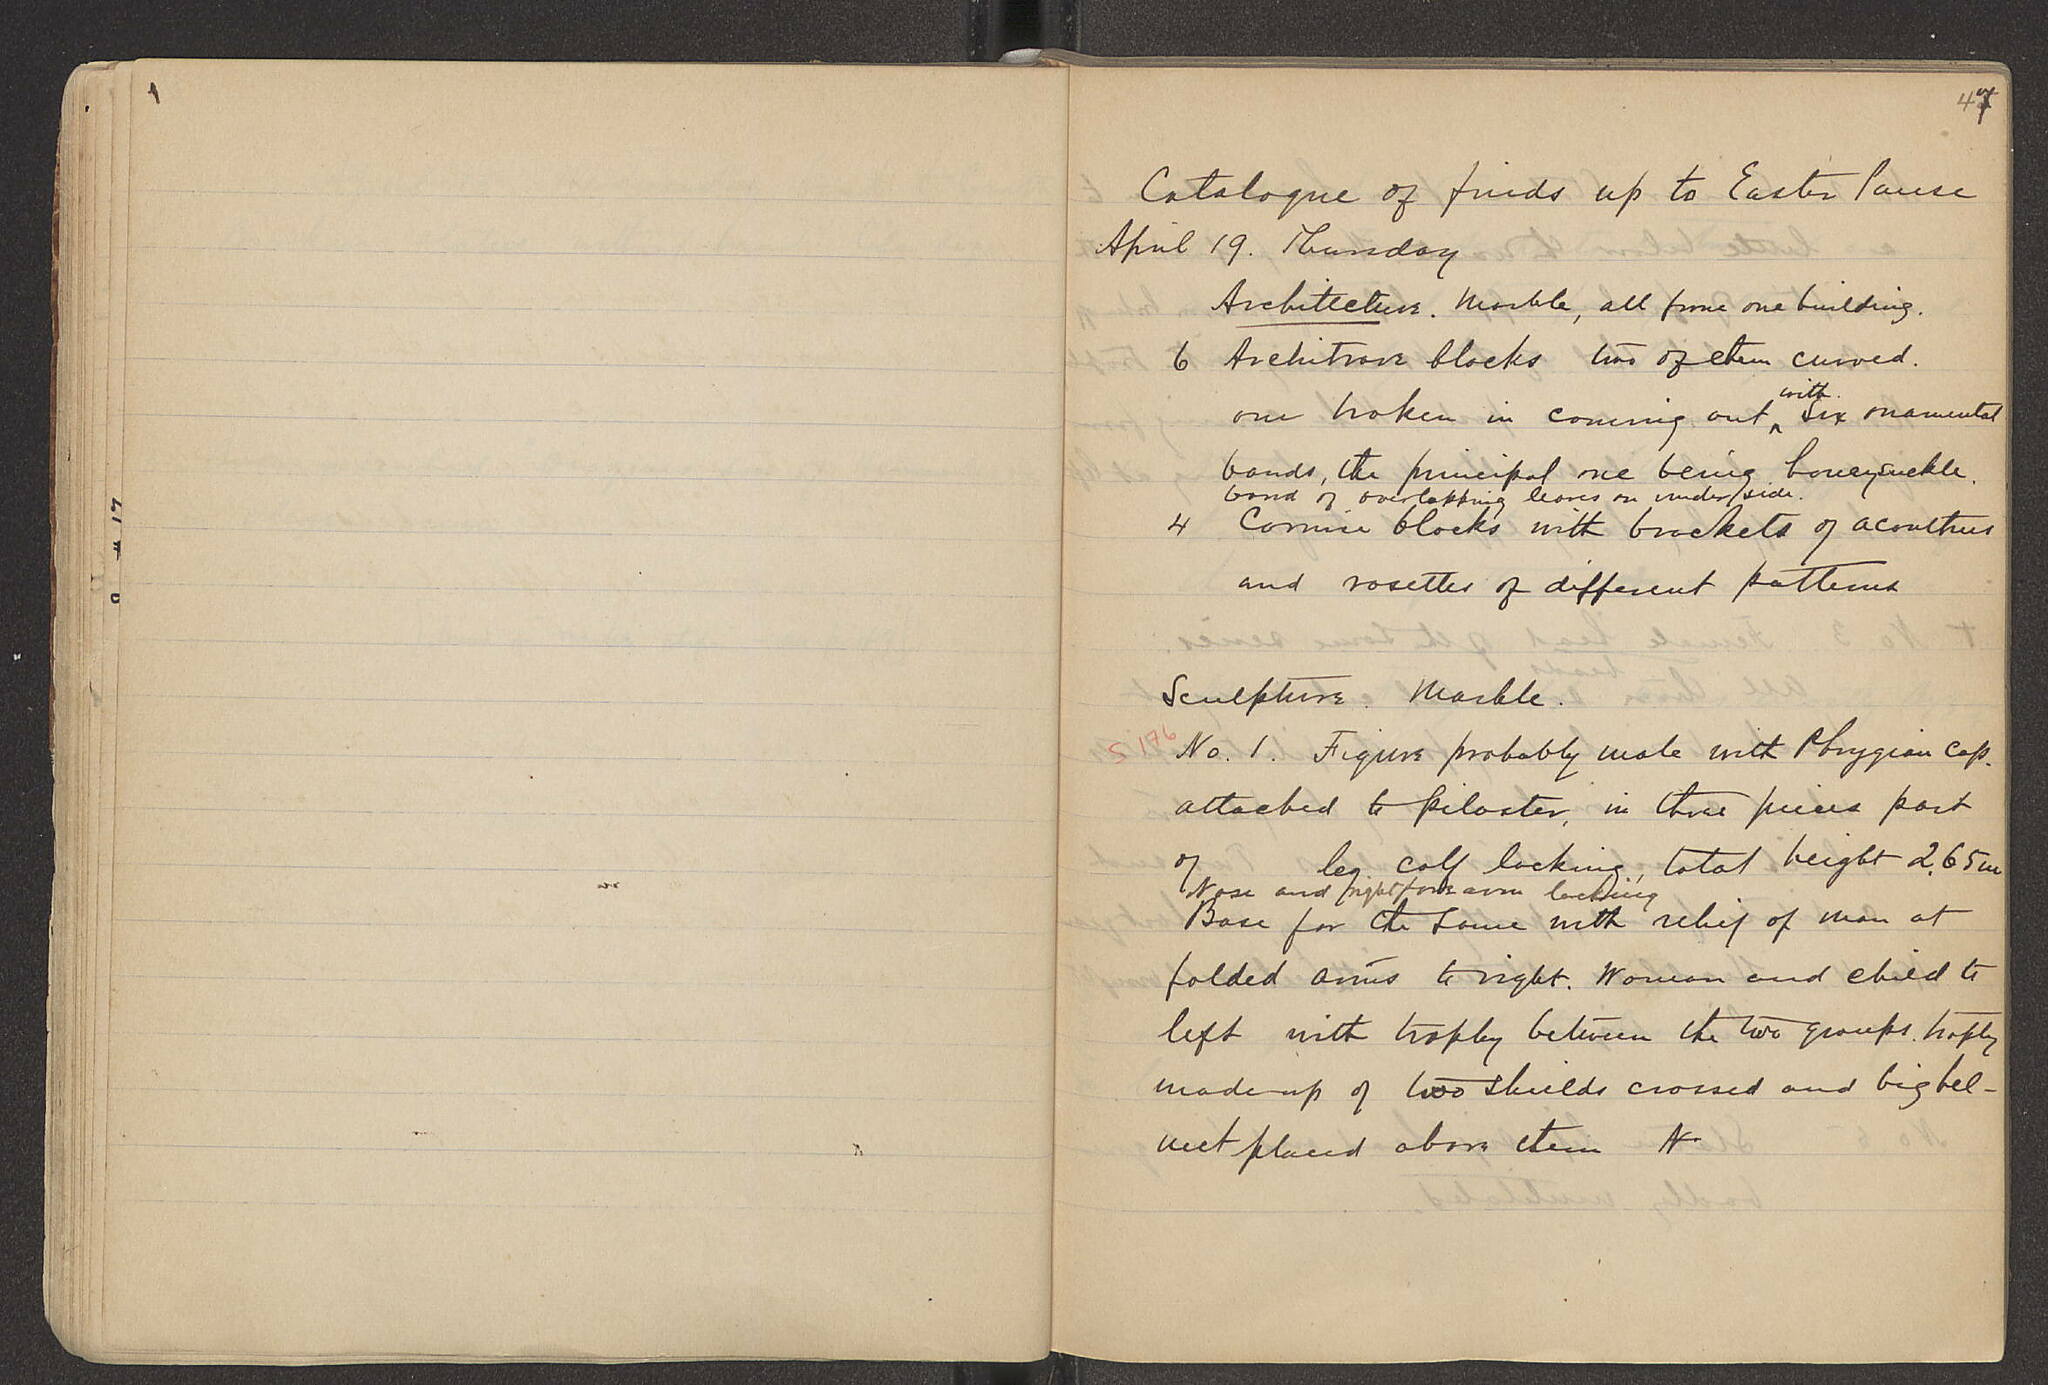 47
Catalogue of finds up to Easter Pause
April 19. Thursday
Architecture. Marble, all from one building.
6 Architrave blocks two of them curved.
one broken in coming out with six onamental
bands, the principal one being honeysuckle.
band of overlapping leaves on under side.
4 Cornice blocks with brackets of acanthus
and rosettes of different patterns
Sculpture. Marble.
S 176 No. 1. Figure probably male with Phrygian cap.
attached to pilaster, in three pieces part
of leg calf lacking, total height 2.65m
Nose and right forearm lacking
Base for the same with relief of man at
folded arms to right. Woman and child to
left with trophy between the two groups. trophy
made up of two shields crossed and big hel-
met placed above them